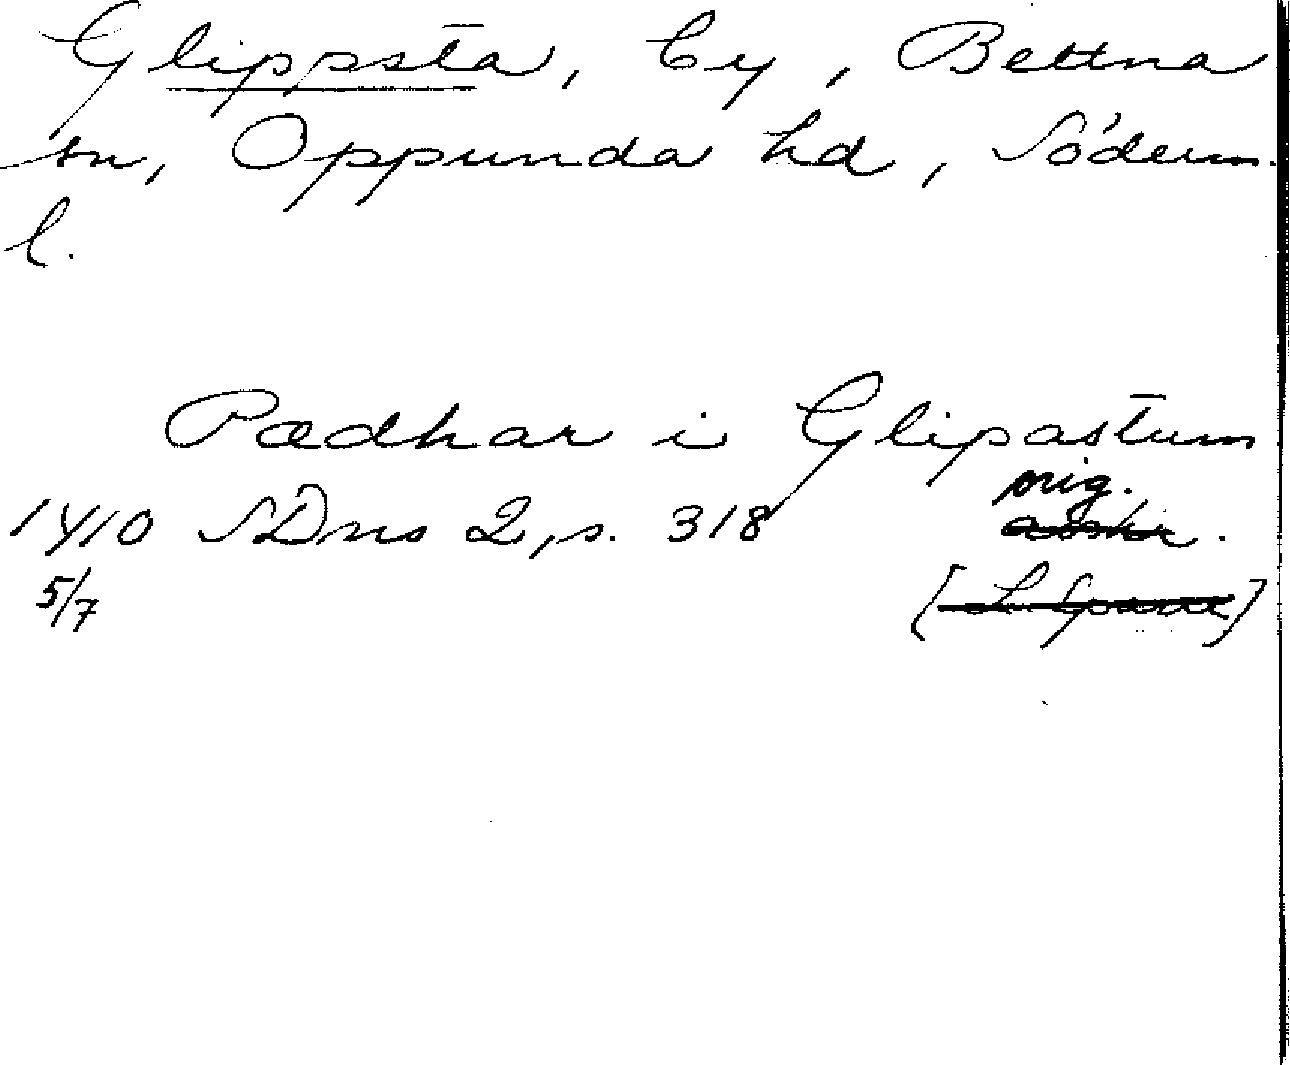 Glippsta, by, Bettna
sn, Oppunda hd, Söderm.
l.
Pædhar i Glipastum
orig.
1410 SDns 2, s. 318 avskr.
5/7 [L Sparre]